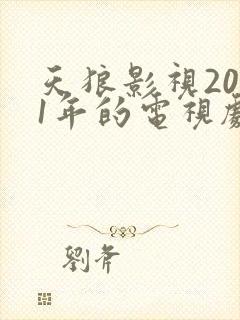 天狼影視20
1年的電視劇
劉斧